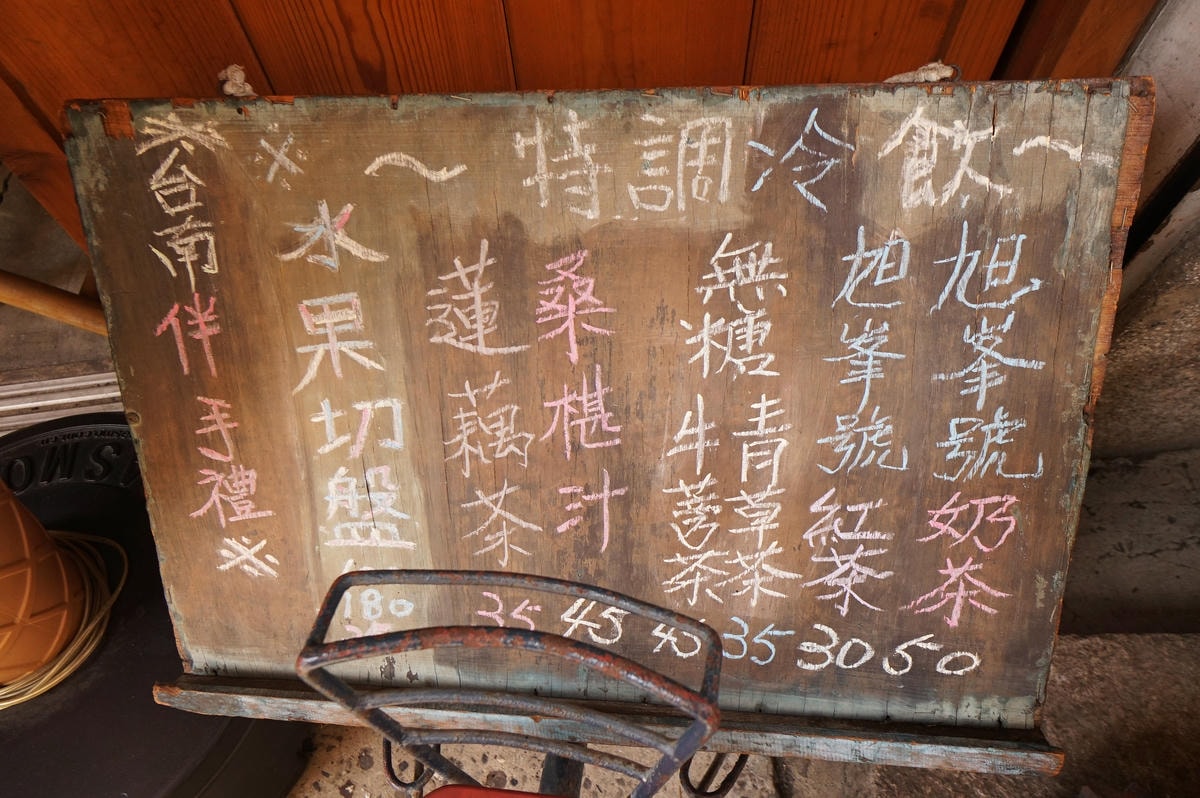 ～特調冷飲～
旭峯號奶茶 50
旭峯號紅茶 30
無糖青草茶 35
無糖牛蒡茶 45
桑椹汁 45
蓮藕茶 35
水果切盤 180
※台南伴手禮※
※